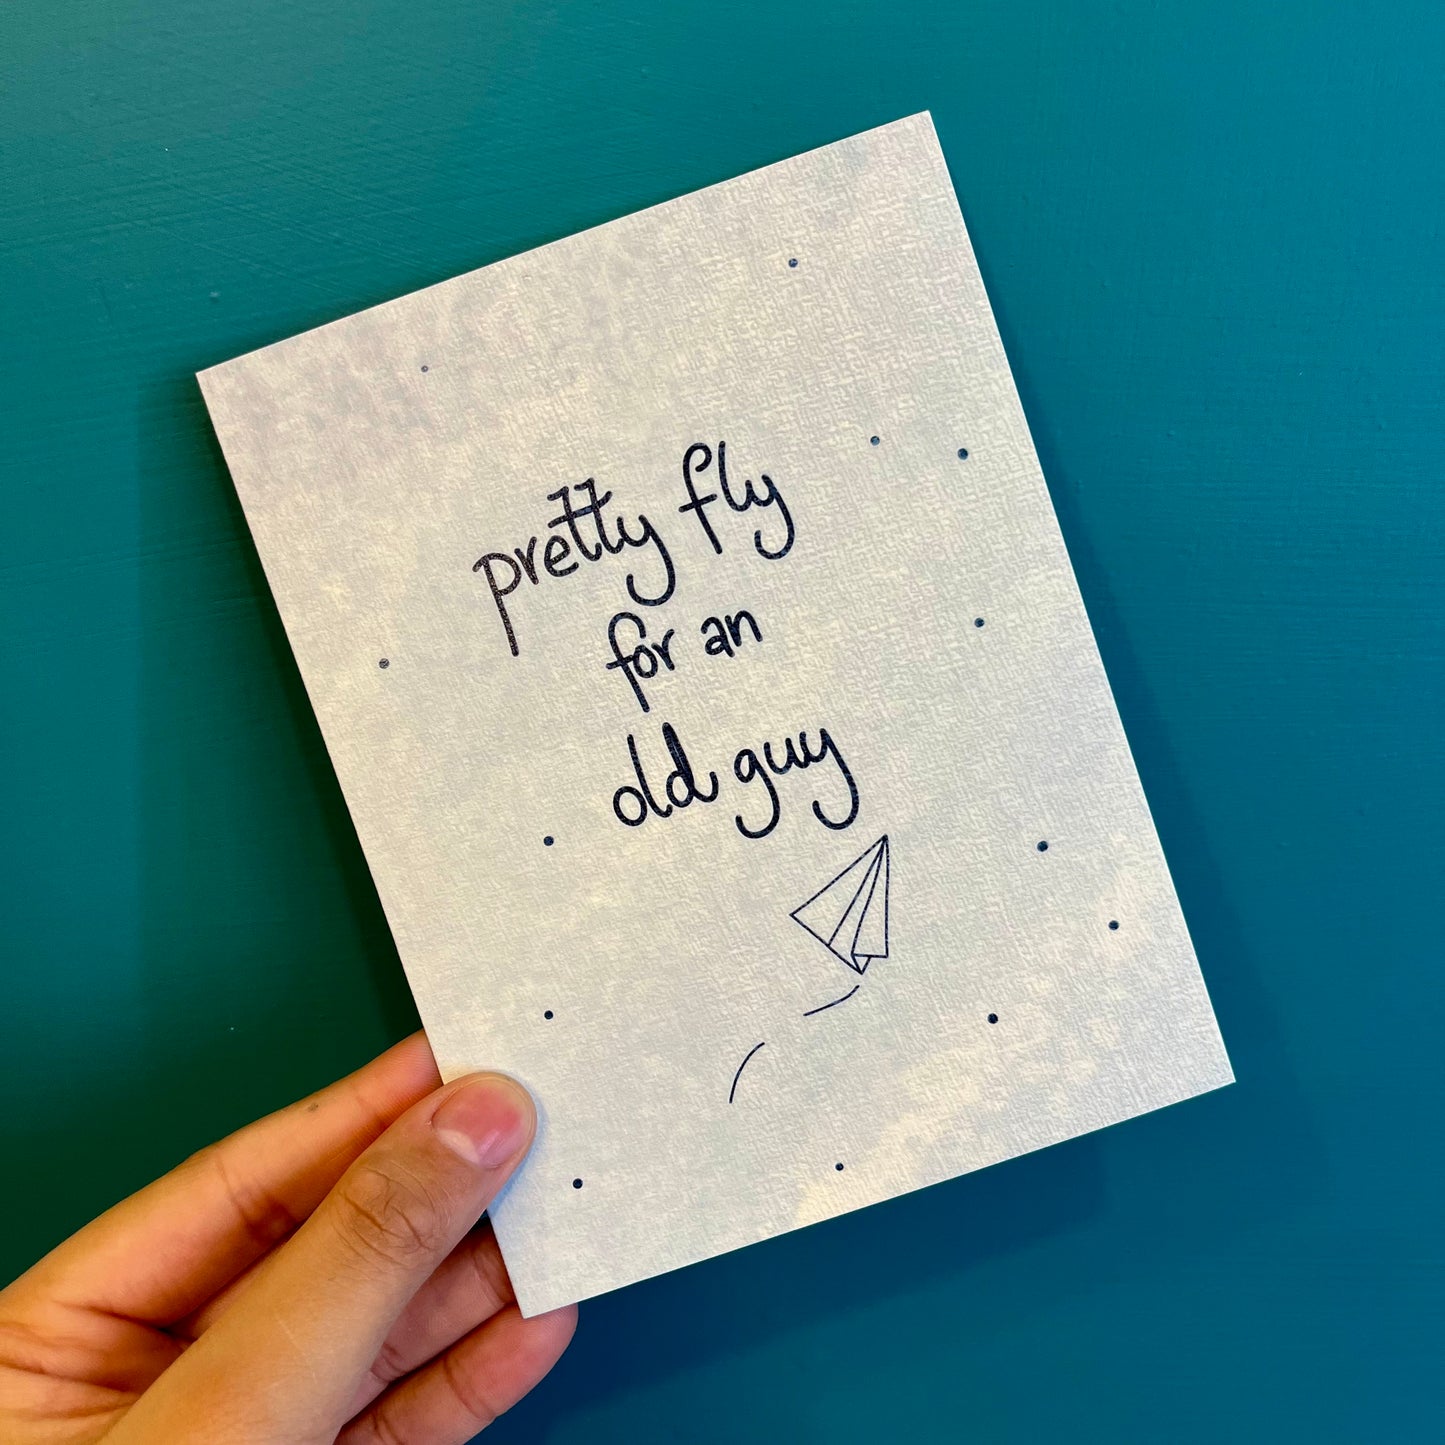 pretty fly
for an
old guy